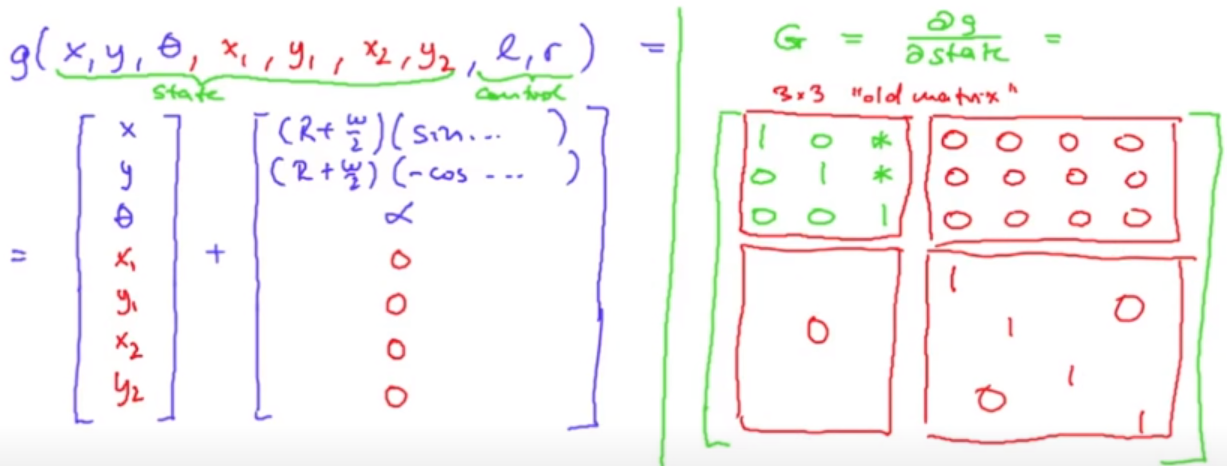 g(x, y, θ, x₁, y₁, x₂, y₂, l, r) =
state control
= [x y θ x₁ y₁ x₂ y₂] + [(R+w/2)(sin... ) (R+w/2)(-cos ... ) α 0 0 0 0]
G = ∂g/∂state =
3x3 "old matrix"
1 0 * 0 0 0 0
0 1 * 0 0 0 0
0 0 1 0 0 0 0
1
0
0 1
1
0
1